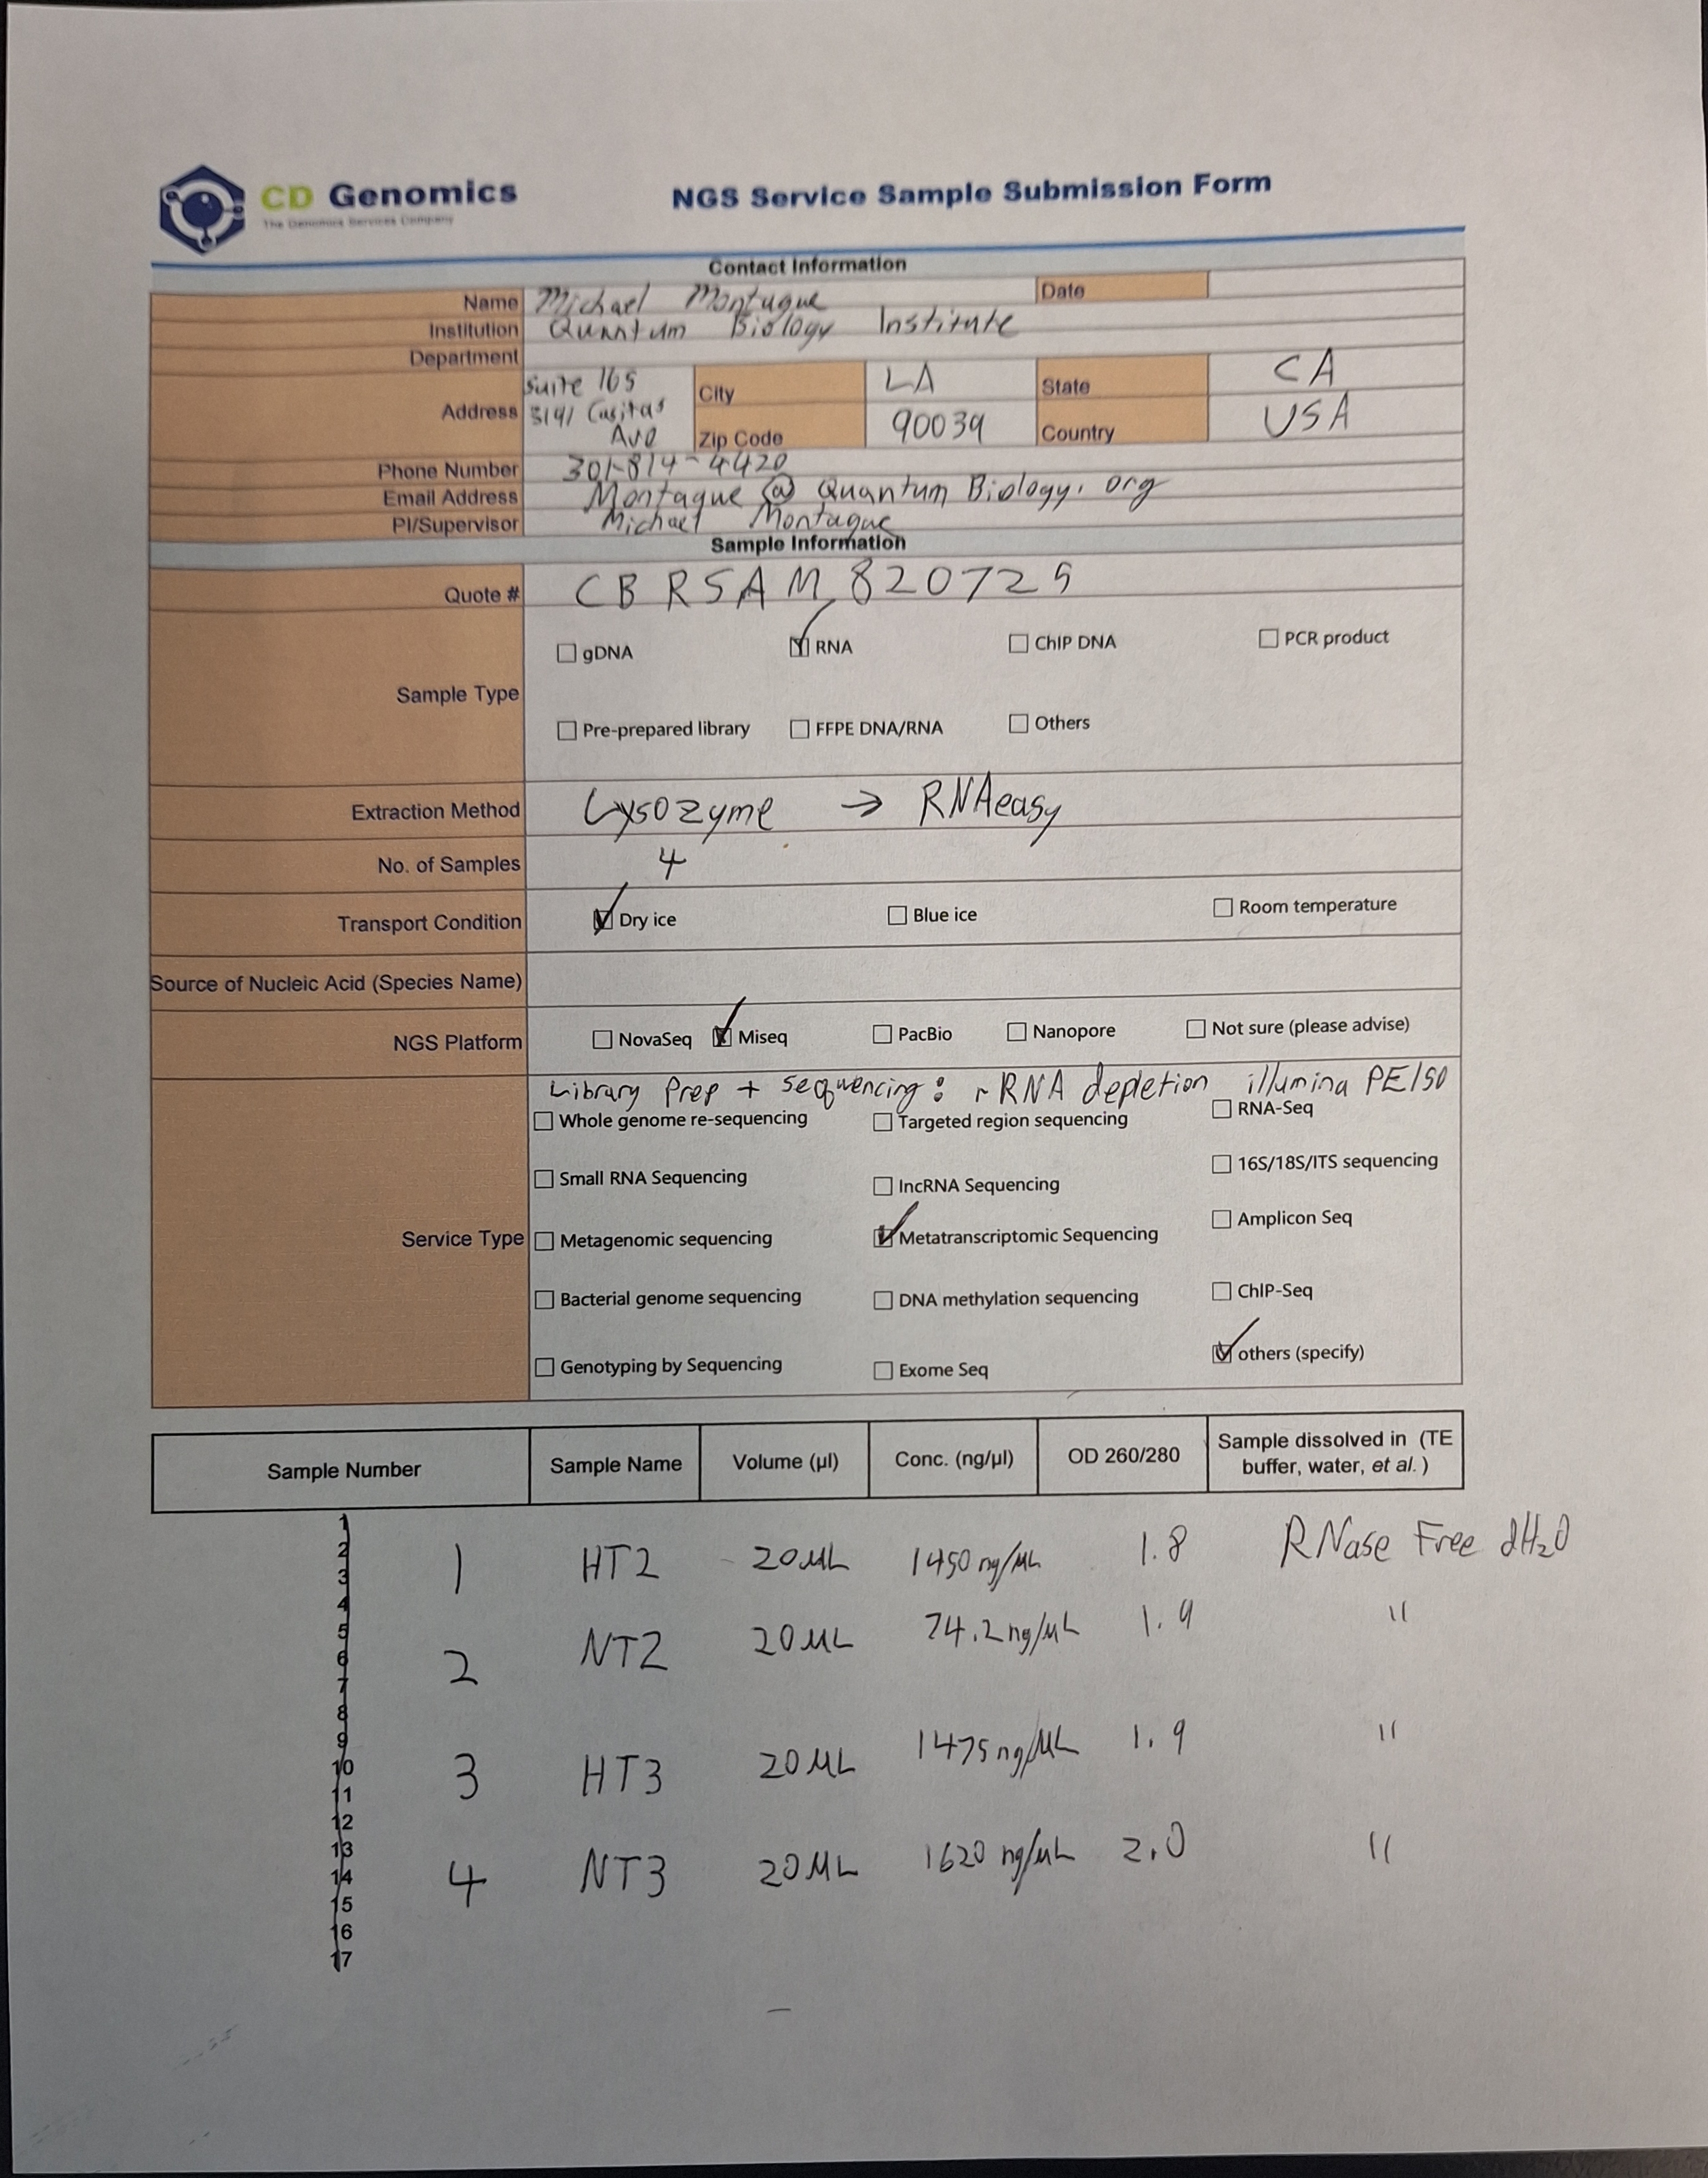 CD Genomics
The Genomics Services Company
NGS Service Sample Submission Form
Contact Information
Name Michael Montague Date
Institution Quantum Biology Institute
Department
Address Suite 165 3191 Casitas Ave City LA State CA
Zip Code 90039 Country USA
Phone Number 301-814-4420
Email Address Montague @ Quantum Biology. org
PI/Supervisor Michael Montague
Sample Information
Quote # CBRSAM820725
Sample Type
gDNA RNA ChIP DNA PCR product
Pre-prepared library FFPE DNA/RNA Others
Extraction Method Lysozyme → RNAeasy
No. of Samples 4
Transport Condition Dry ice Blue ice Room temperature
Source of Nucleic Acid (Species Name)
NGS Platform NovaSeq Miseq PacBio Nanopore Not sure (please advise)
Library Prep + sequencing: rRNA depletion illumina PE150
Whole genome re-sequencing Targeted region sequencing RNA-Seq
Small RNA Sequencing lncRNA Sequencing 16S/18S/ITS sequencing
Service Type Metagenomic sequencing Metatranscriptomic Sequencing Amplicon Seq
Bacterial genome sequencing DNA methylation sequencing ChIP-Seq
Genotyping by Sequencing Exome Seq others (specify)
Sample Number Sample Name Volume (µl) Conc. (ng/µl) OD 260/280 Sample dissolved in (TE buffer, water, et al. )
1
2
3
4
5
6
7
8
9
10
11
12
13
14
15
16
17
1 HT2 20 µL 1450 ng/µL 1.8 RNase Free dH₂O
2 NT2 20 µL 74.2 ng/µL 1.9 "
3 HT3 20 µL 1475 ng/µL 1.9 "
4 NT3 20 µL 1620 ng/µL 2.0 "